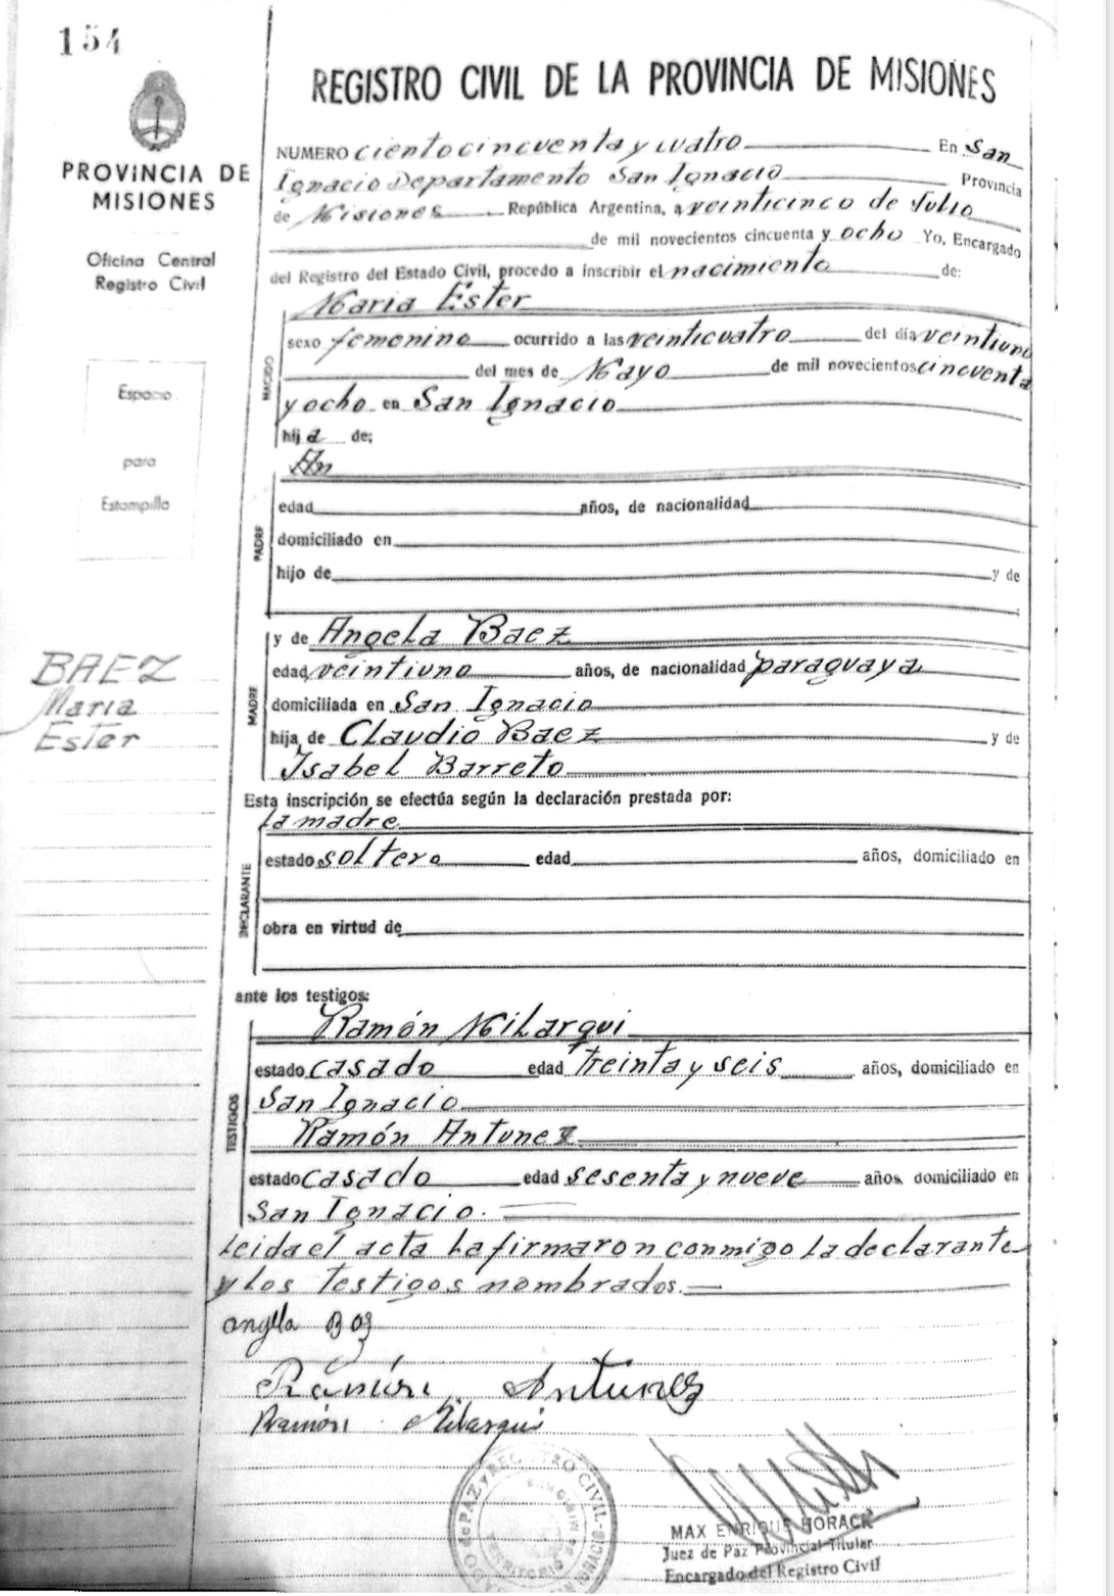 154
PROVINCIA DE
MISIONES
Oficina Central
Registro Civil
Espacio
para
Estampilla
BAEZ
Maria
Ester
REGISTRO CIVIL DE LA PROVINCIA DE MISIONES
NUMERO ciento cincuenta y cuatro En San
Ignacio Departamento San Ignacio Provincia
de Misiones República Argentina, a veinticinco de Julio
de mil novecientos cincuenta y ocho Yo, Encargado
del Registro del Estado Civil, procedo a inscribir el nacimiento de:
NACIDO
Maria Ester
sexo femenino ocurrido a las veinticuatro del día veintiuno
del mes de Mayo de mil novecientos cincuenta
y ocho en San Ignacio
hija de:
PADRE
edad años, de nacionalidad
domiciliado en
hijo de y de
MADRE
y de Angela Baez
edad veintiuno años, de nacionalidad paraguaya
domiciliada en San Ignacio
hija de Claudio Baez y de
Isabel Barreto
Esta inscripción se efectúa según la declaración prestada por:
DECLARANTE
la madre
estado soltera edad años, domiciliado en
obra en virtud de
ante los testigos:
TESTIGOS
Ramón Milarqui
estado casado edad treinta y seis años, domiciliado en
San Ignacio
Ramón Antunez
estado casado edad sesenta y nueve años domiciliado en
San Ignacio.
Leida el acta la firmaron conmigo la declarante
y los testigos nombrados.
Ramón Antunez
Ramón Milarqui
DE PAZ Y REGISTRO CIVIL
MAX ENRIQUE HORACK
Juez de Paz Provincial Titular
Encargado del Registro Civil